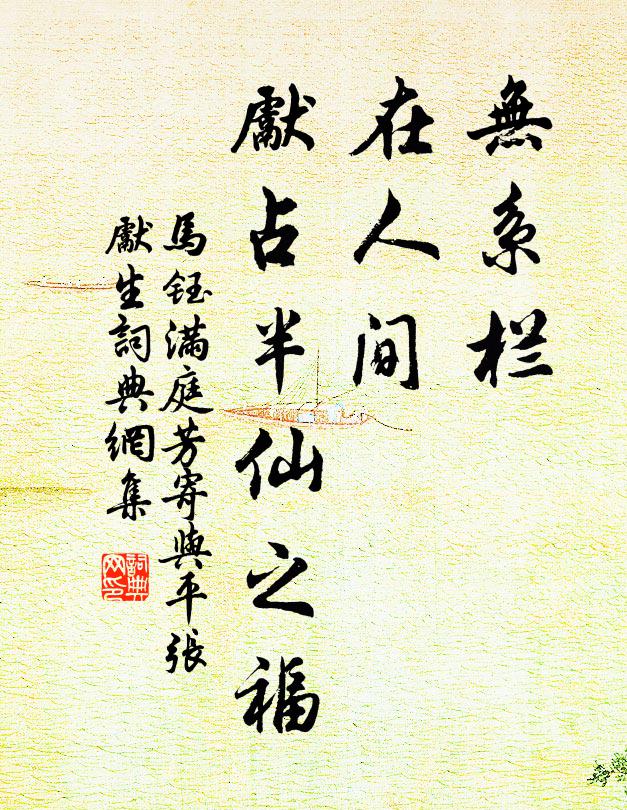 無系栏
在人间
獻占半仙之福
馬鈺满庭芳寄與平張
獻生詞典網集
詞典
网印